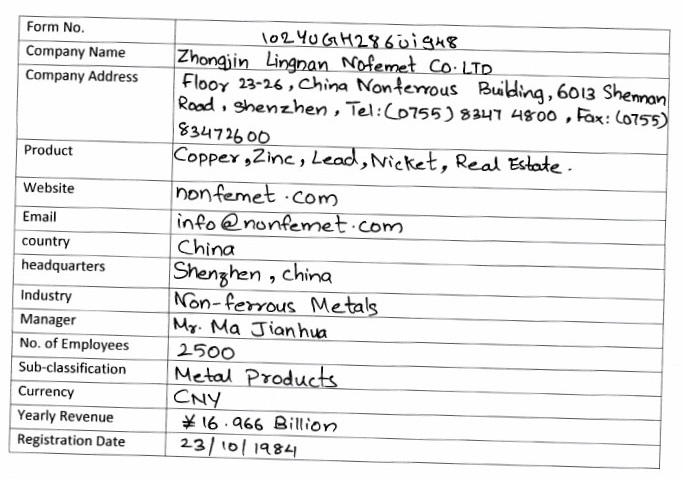 Form No. 1024UGH286Ui948
Company Name Zhongjin Lingnan Nofemet Co. LTD
Company Address Floor 23-26, China Nonferrous Building, 6013 Shennan
Road, shenzhen, Tel: (0755) 8347 4800, Fax: (0755)
83472600
Product Copper, Zinc, Lead, Nicket, Real Estate.
Website nonfemet.com
Email info@nonfemet.com
country China
headquarters Shenzhen, china
Industry Non-ferrous Metals
Manager Mr. Ma Jianhua
No. of Employees 2500
Sub-classification Metal Products
Currency CNY
Yearly Revenue ¥16.966 Billion
Registration Date 23/10/1984